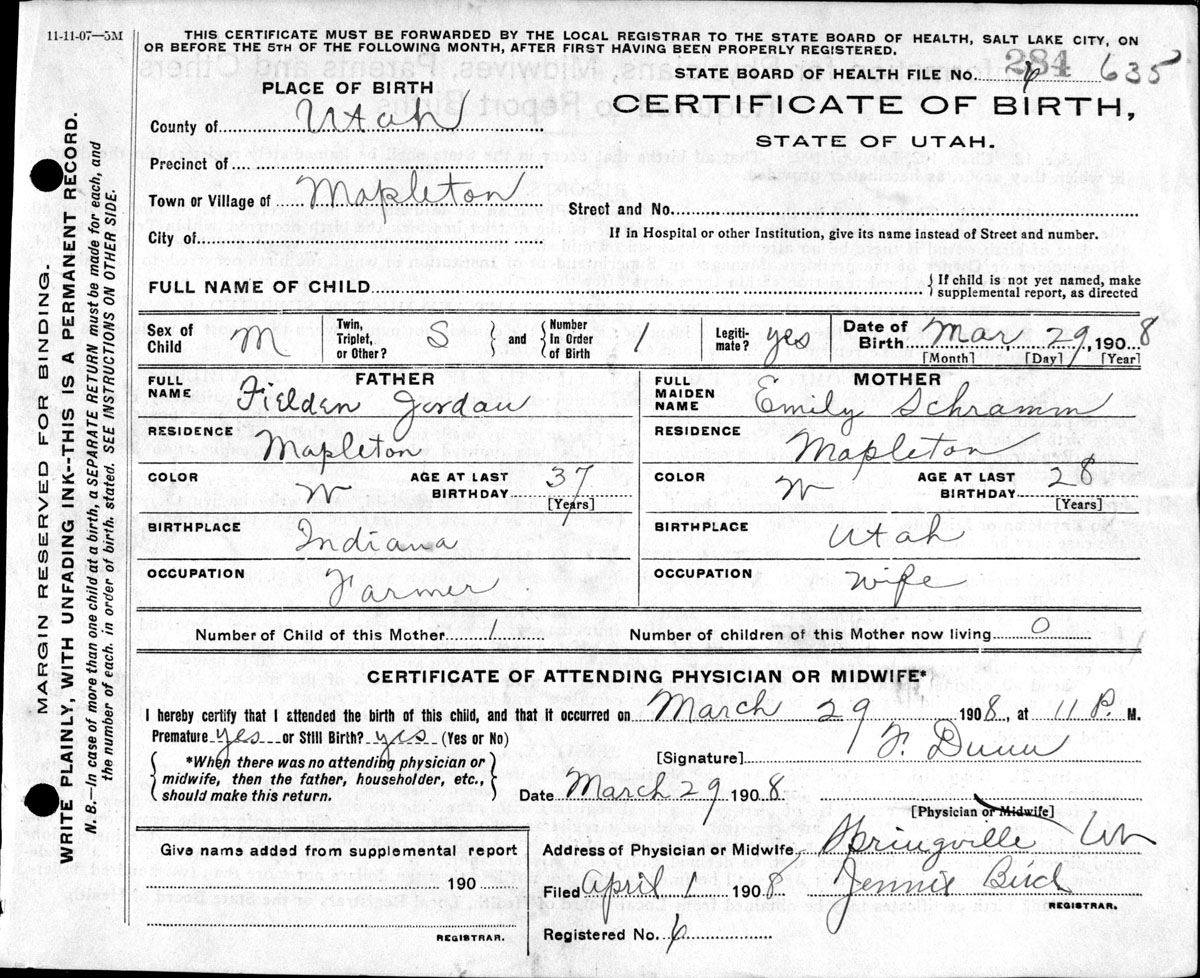 11-11-07—5M
THIS CERTIFICATE MUST BE FORWARDED BY THE LOCAL REGISTRAR TO THE STATE BOARD OF HEALTH, SALT LAKE CITY, ON
OR BEFORE THE 5TH OF THE FOLLOWING MONTH, AFTER FIRST HAVING BEEN PROPERLY REGISTERED.
STATE BOARD OF HEALTH FILE No. 284 6 635
PLACE OF BIRTH
CERTIFICATE OF BIRTH,
STATE OF UTAH.
County of Utah
Precinct of
Town or Village of Mapleton
Street and No.
City of
If in Hospital or other Institution, give its name instead of Street and number.
FULL NAME OF CHILD
{ If child is not yet named, make
supplemental report, as directed
Sex of Child M
Twin, Triplet, or Other? S } and { Number In Order of Birth 1
Legiti-mate? yes
Date of Birth Mar 29, 1908
[Month] [Day] [Year]
FATHER
FULL NAME Fielden Jordan
RESIDENCE Mapleton
COLOR W AGE AT LAST BIRTHDAY 37
[Years]
BIRTHPLACE Indiana
OCCUPATION Farmer
MOTHER
FULL MAIDEN NAME Emily Schramm
RESIDENCE Mapleton
COLOR W AGE AT LAST BIRTHDAY 28
[Years]
BIRTHPLACE Utah
OCCUPATION Wife
Number of Child of this Mother 1 Number of children of this Mother now living 0
CERTIFICATE OF ATTENDING PHYSICIAN OR MIDWIFE*
I hereby certify that I attended the birth of this child, and that it occurred on March 29 1908, at 11 P. M.
Premature yes or Still Birth? yes (Yes or No)
*When there was no attending physician or
midwife, then the father, householder, etc.,
should make this return.
[Signature] F. Dunn
Date March 29 1908
[Physician or Midwife]
Address of Physician or Midwife, Springville Ut
Filed April 1 1908, Jennie Bird
REGISTRAR.
Registered No. 6
Give name added from supplemental report
190
REGISTRAR.
MARGIN RESERVED FOR BINDING.
WRITE PLAINLY, WITH UNFADING INK--THIS IS A PERMANENT RECORD.
N. B.—In case of more than one child at a birth, a SEPARATE RETURN must be made for each, and
the number of each, in order of birth, stated. SEE INSTRUCTIONS ON OTHER SIDE.